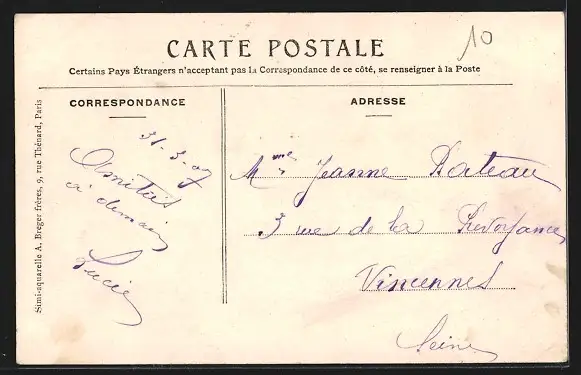 10
CARTE POSTALE
Certains Pays Étrangers n'acceptant pas la Correspondance de ce côté, se renseigner à la Poste
CORRESPONDANCE
31-3-07
Amitiés
à demain
Lucie
ADRESSE
Mme Jeanne
3 rue de la Prévoyance
Vincennes
Seine
Simi-aquarelle A. Breger frères, 9, rue Thénard, Paris